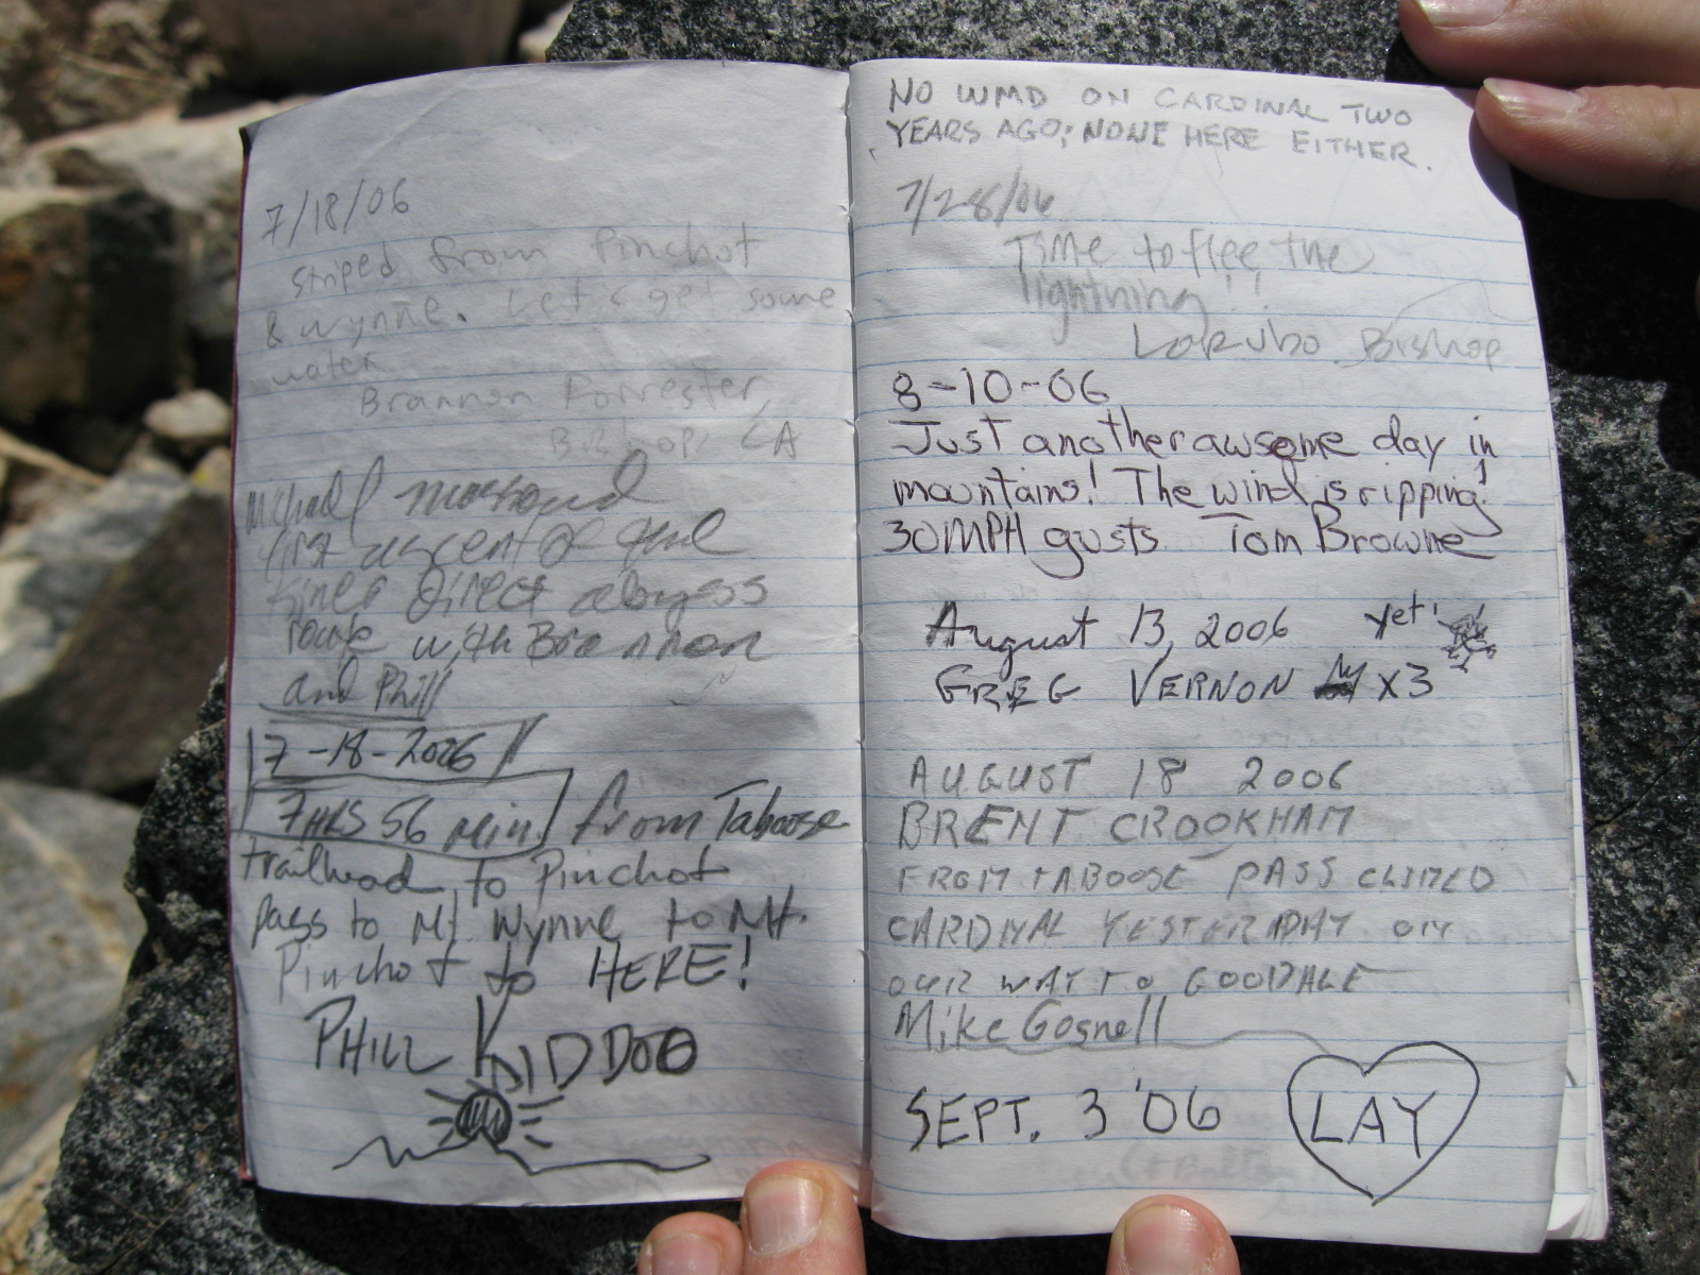 7/18/06
striped from Pinchot
& wynne. Let's get some
water
Brannon Forrester
Bishop, CA
Michael
first ascent of the
direct abyss
route with Brannon
and Phill
7-18-2006
7 HRS 56 Min. from Taboose
trailhead to Pinchot
pass to Mt Wynne to Mt.
Pinchot to HERE!
PHILL KIDDOO
NO WMD ON CARDINAL TWO
YEARS AGO; NONE HERE EITHER.
7/28/06
Time to flee the
lightning!!
Bishop
8-10-06
Just another awsome day in
mountains! The wind is ripping!
30MPH gusts Tom Browne
August 13, 2006 yet!
GREG VERNON x3
AUGUST 18 2006
BRENT CROOKHAM
FROM TABOOSE PASS CLIMED
CARDINAL YESTERDAY ON
OUR WAY TO GOODALE
Mike Gosnell
SEPT. 3 '06 LAY